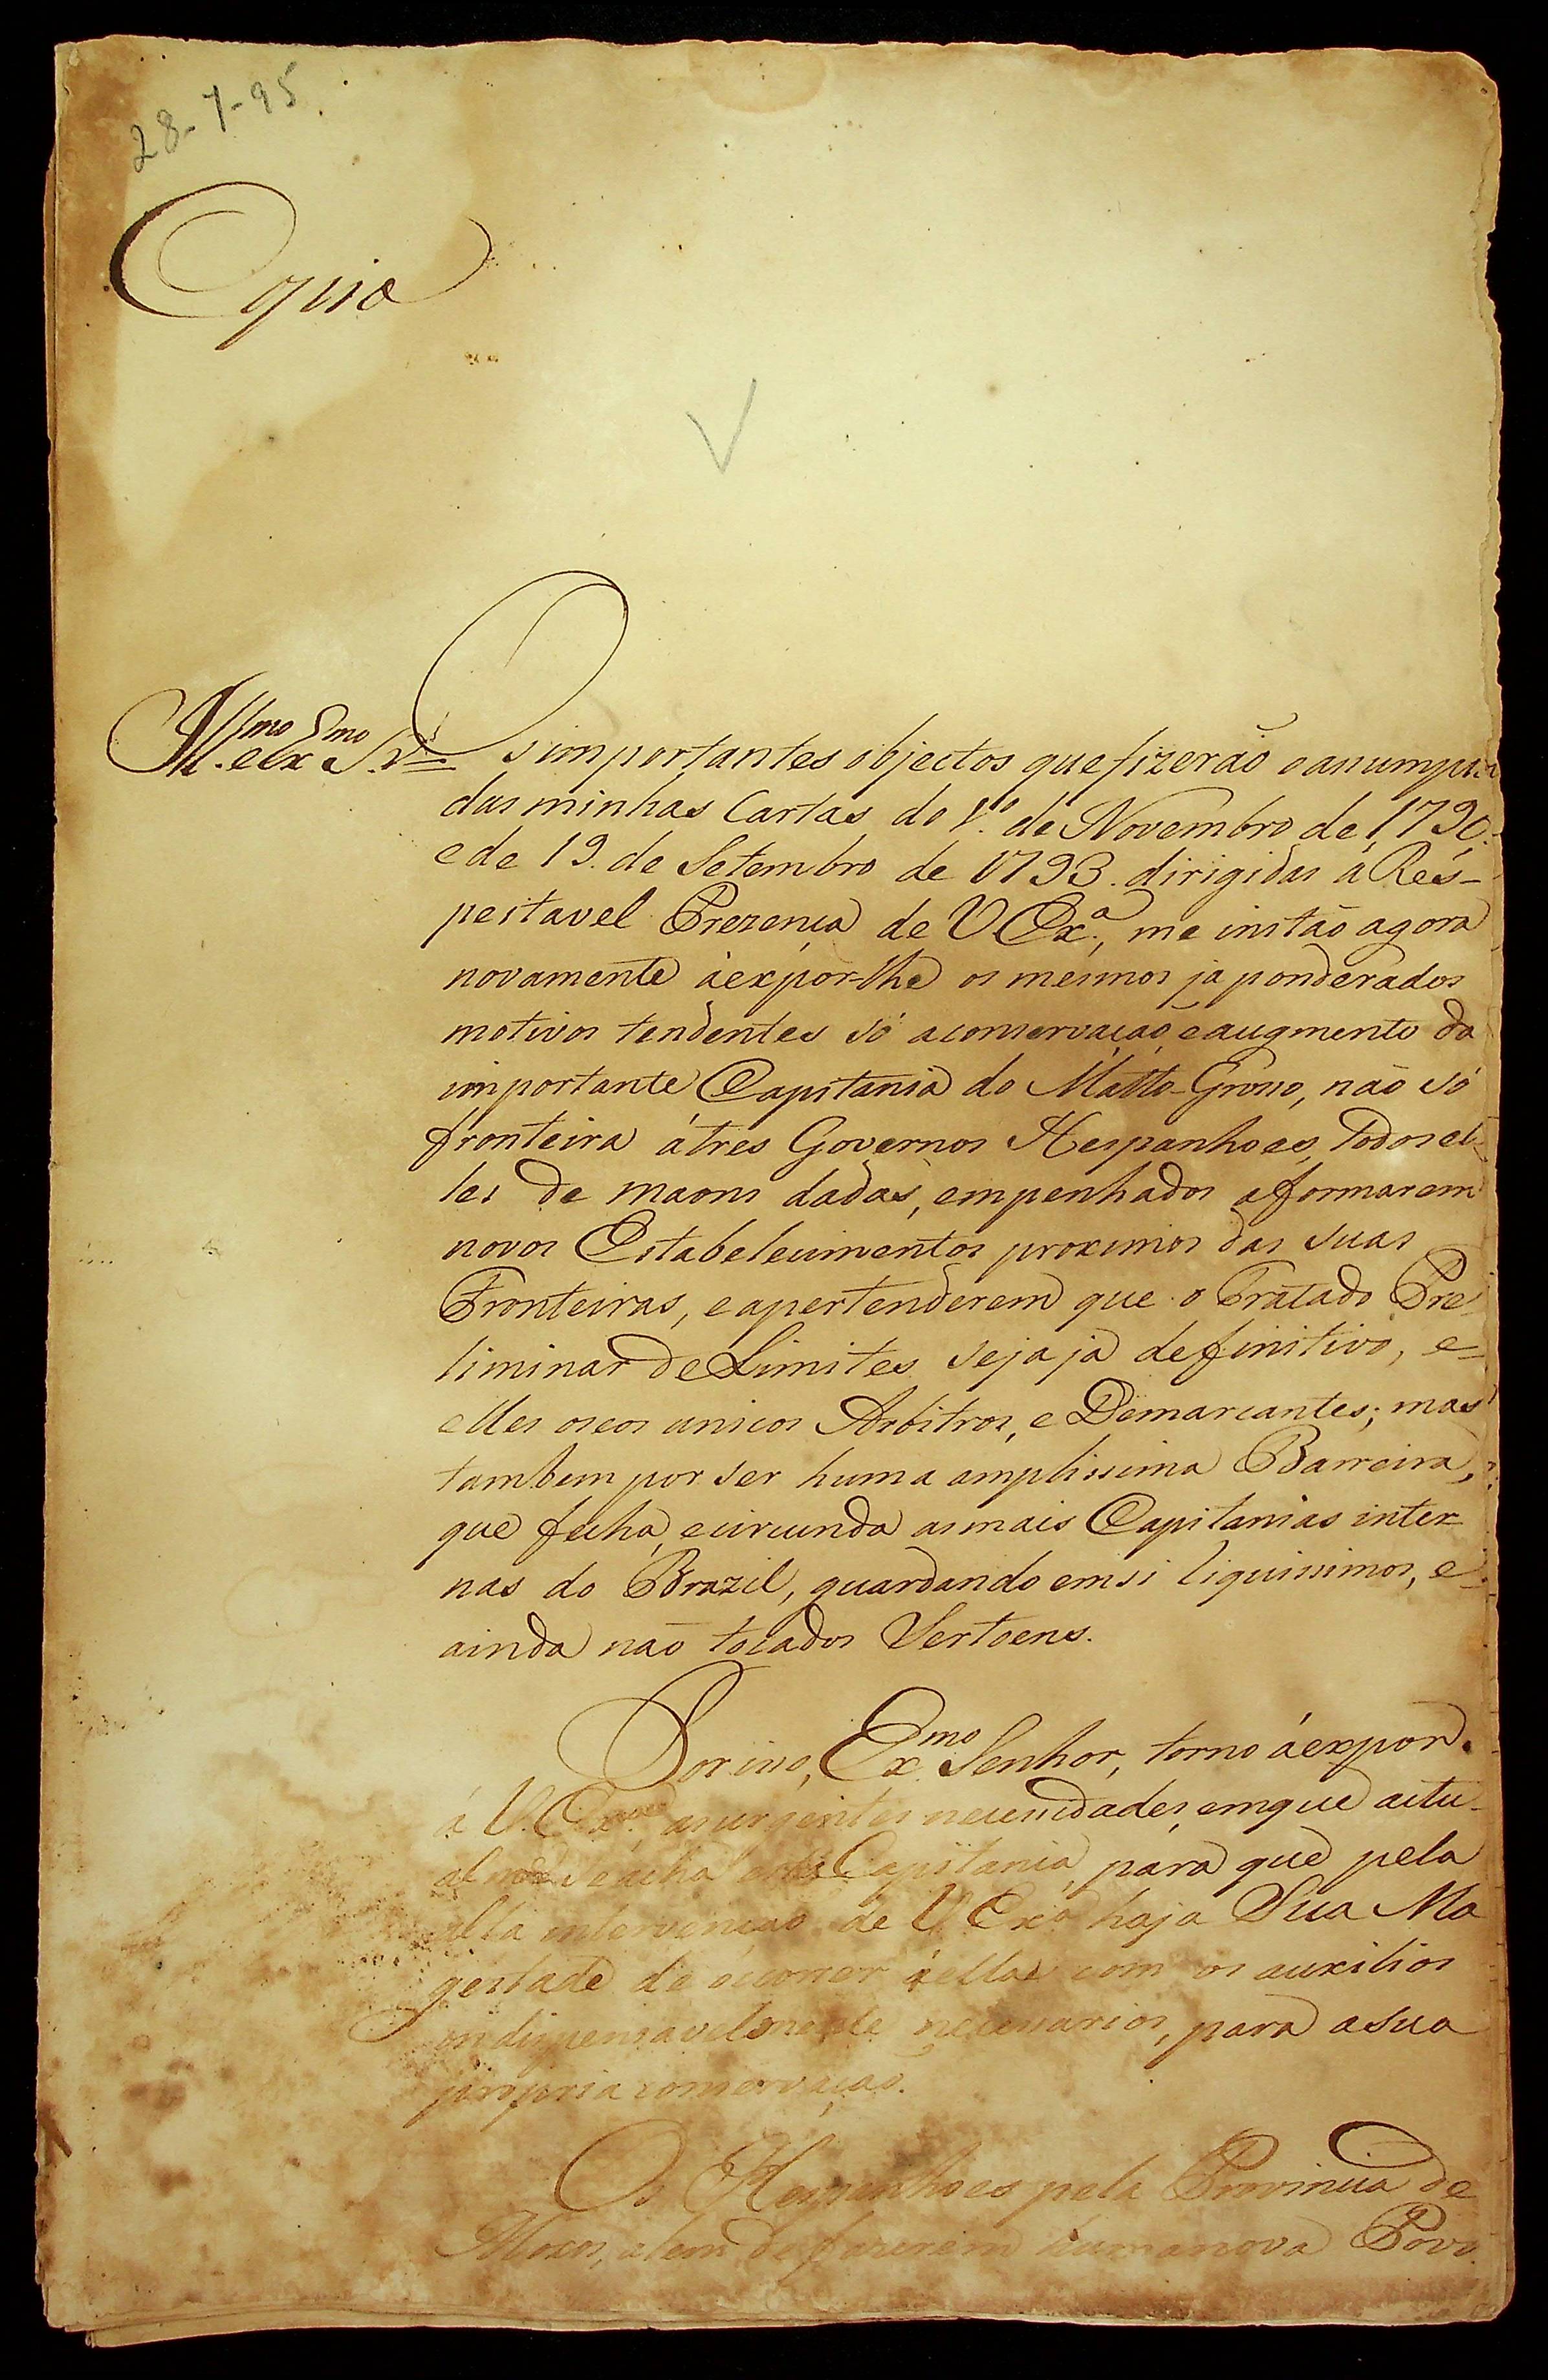 28-7-95.
Copia
Ill.mo e Ex.mo S.r Os importantes objectos que fizerão o assumpto
das minhas Cartas do 1.º de Novembro de 1790.
e de 19. de Setembro de 1793. dirigidas á Res-
peitavel Prezença de V. Ex.ª, me instão agora
novamente á expor-lhe os mesmos ja ponderados
motivos tendentes só a conservação, e augmento da
importante Capitania do Matto-Grosso, não só
fronteira á tres Governos Hespanhoes, todos el-
les de maons dadas, empenhados a formarem
novos Estabelecimentos proximos das suas
Fronteiras, e a pertenderem que o Tratado Pre-
liminar de Limites seja ja definitivo, e
elles os eos unicos Arbitros, e Demarcantes; mas
tambem por ser huma amplissima Barreira,
que fecha, e circunda as mais Capitanias inter-
nas do Brazil, guardando em si riquissimos, e
ainda não tocados Sertoens.
Por isso, Ex.mo Senhor, torno á expor
á V. Ex.ª as urgentes necessidades, em que actu-
alm.te se acha esta Capitania, para que pela
alta intervenção de V. Ex.ª haja Sua Ma
gestade de occorrer á ellas com os auxilios
indispensavelmente necessarios, para a sua
propria conservação.
Os Hespanhoes pela Provincia de
Moxos, alem de fazerem huma nova Povo